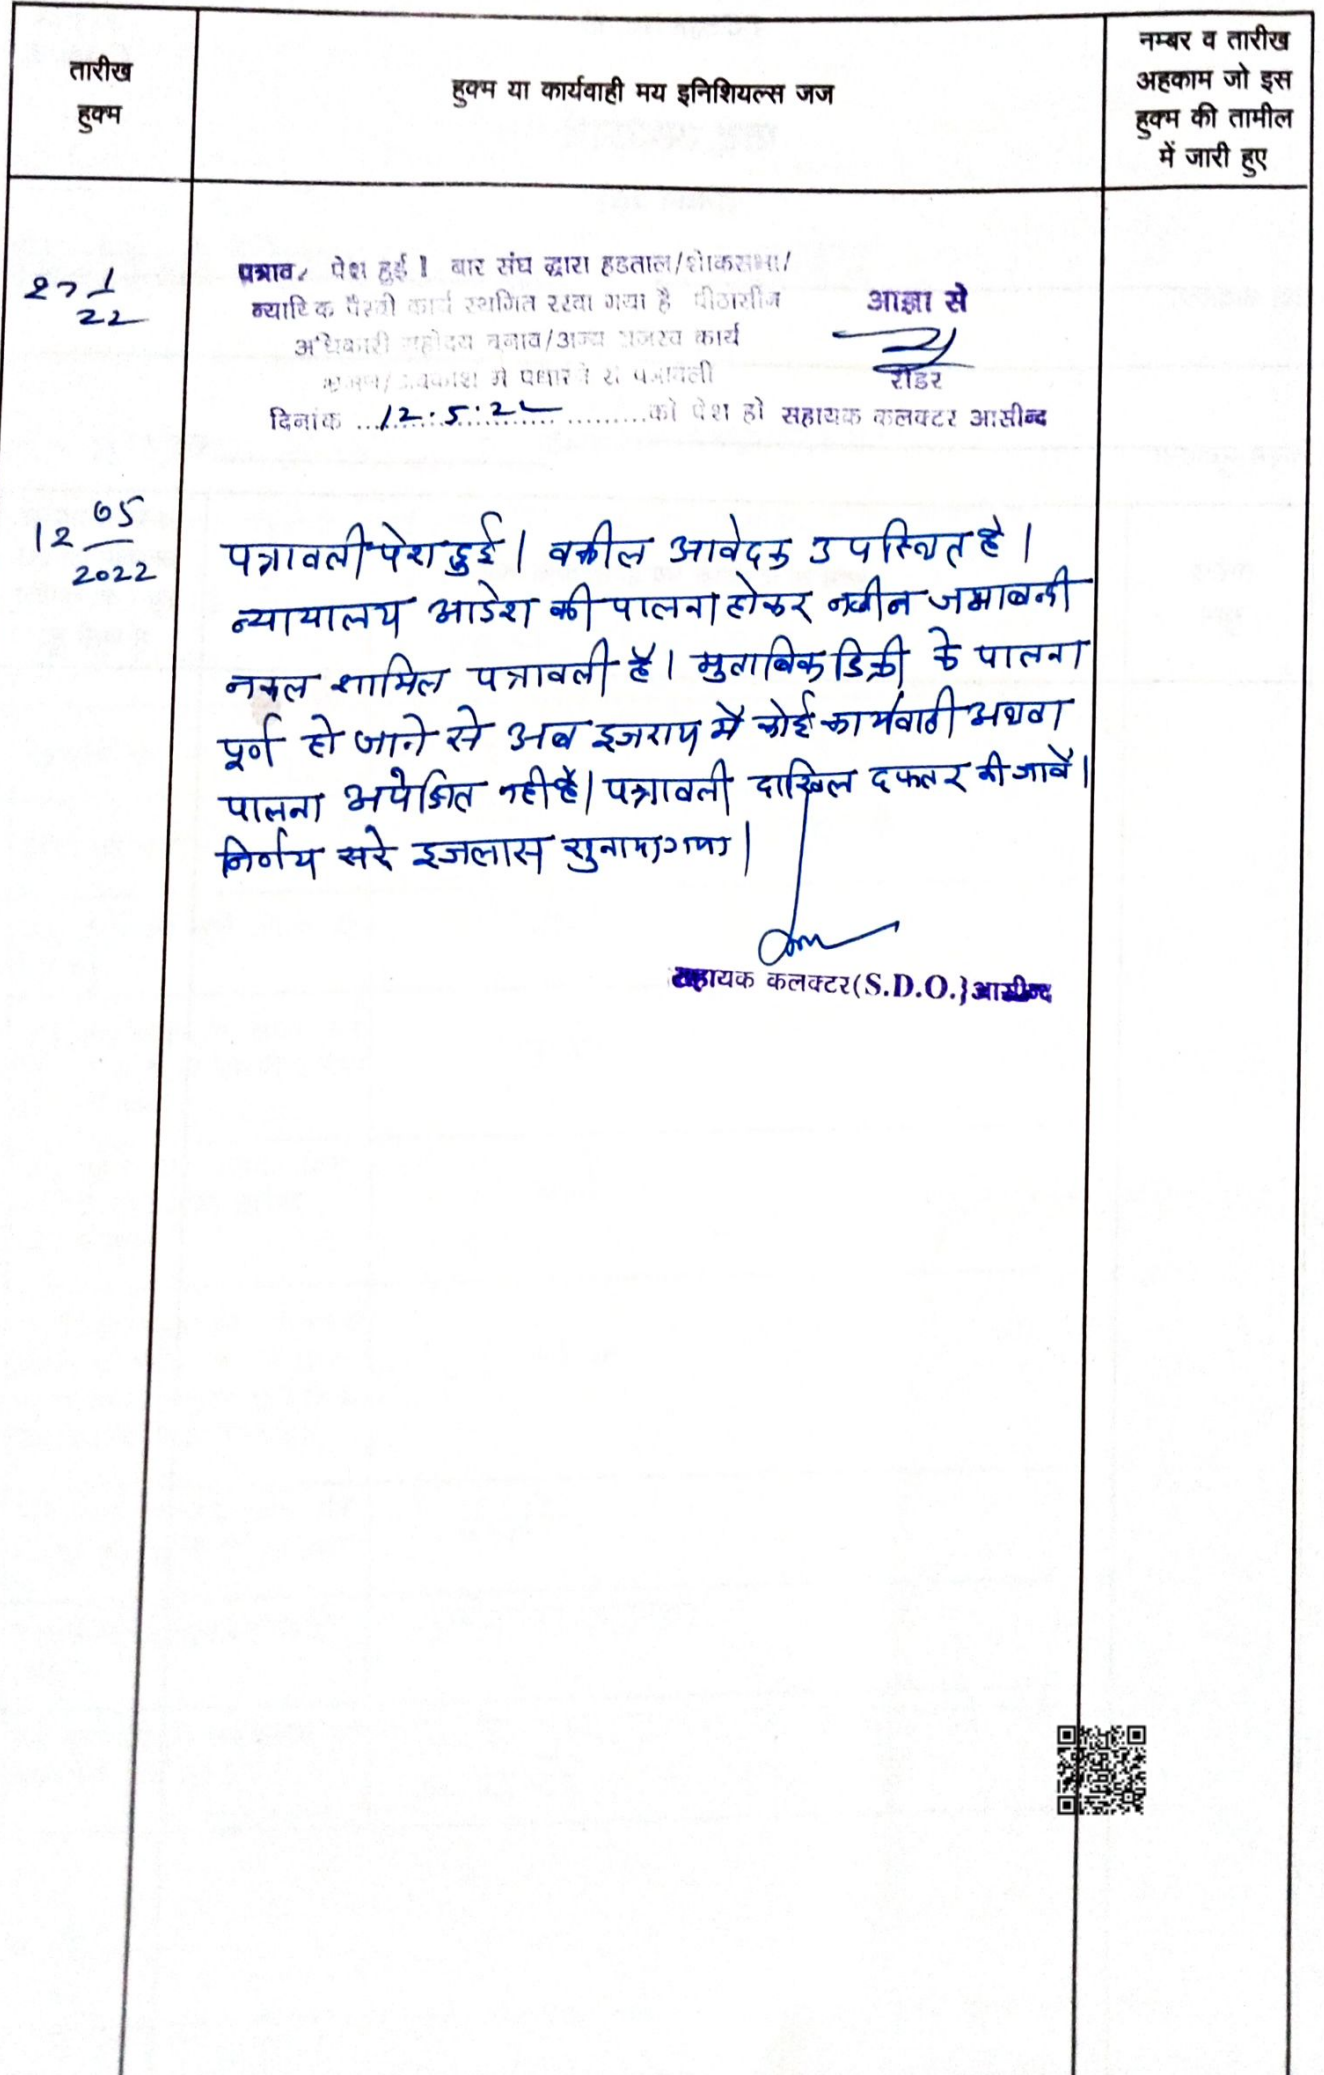 तारीख
हुक्म
हुक्म या कार्यवाही मय इनिशियल्स जज
नम्बर व तारीख
अहकाम जो इस
हुक्म की तामील
में जारी हुए
27 1/22
पत्राव. पेश हुई । बार संघ द्वारा हडताल/शोकसभा/
न्यायिक पैरवी कार्य स्थगित रखा गया है पीठासीन
अधिकारी महोदय चुनाव/अन्य राजस्व कार्य
भ्रमण/अवकाश में पधारने से पत्रावली
दिनांक 12.5.22 को पेश हो
आज्ञा से
रीडर
सहायक कलक्टर आसीन्द
12 05/2022
पत्रावली पेश हुई। वकील आवेदक उपस्थित है।
न्यायालय आदेश की पालना होकर नवीन जमाबन्दी
नकल शामिल पत्रावली है। मुताबिक डिक्री के पालना
पूर्ण हो जाने से अब इजराय में कोई कार्यवाही अथवा
पालना अपेक्षित नही है। पत्रावली दाखिल दफ्तर की जावें।
निर्णय सरे इजलास सुनाया गया।
सहायक कलक्टर(S.D.O.)आसीन्द